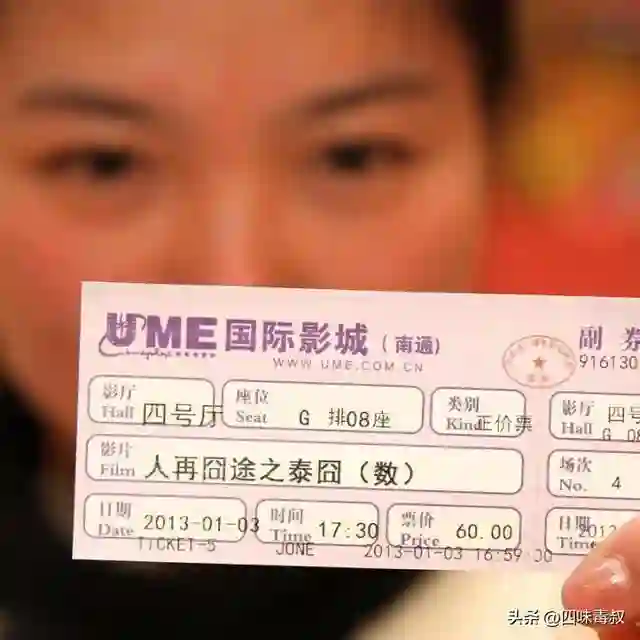 UME 国际影城（南通） 副 券
WWW.UME.COM.CN 916130
影厅 Hall 四号厅 座位 Seat G 排08座 类别 Kind 正价票 影厅 Hall 四号 G 08
影片 Film 人再囧途之泰囧（数） 场次 No. 4
日期 Date 2013-01-03 时间 Time 17:30 票价 Price 60.00 日期 2012 Time
TICKET-5 JONE 2013-01-03 16:59:00
头条 @四味毒叔